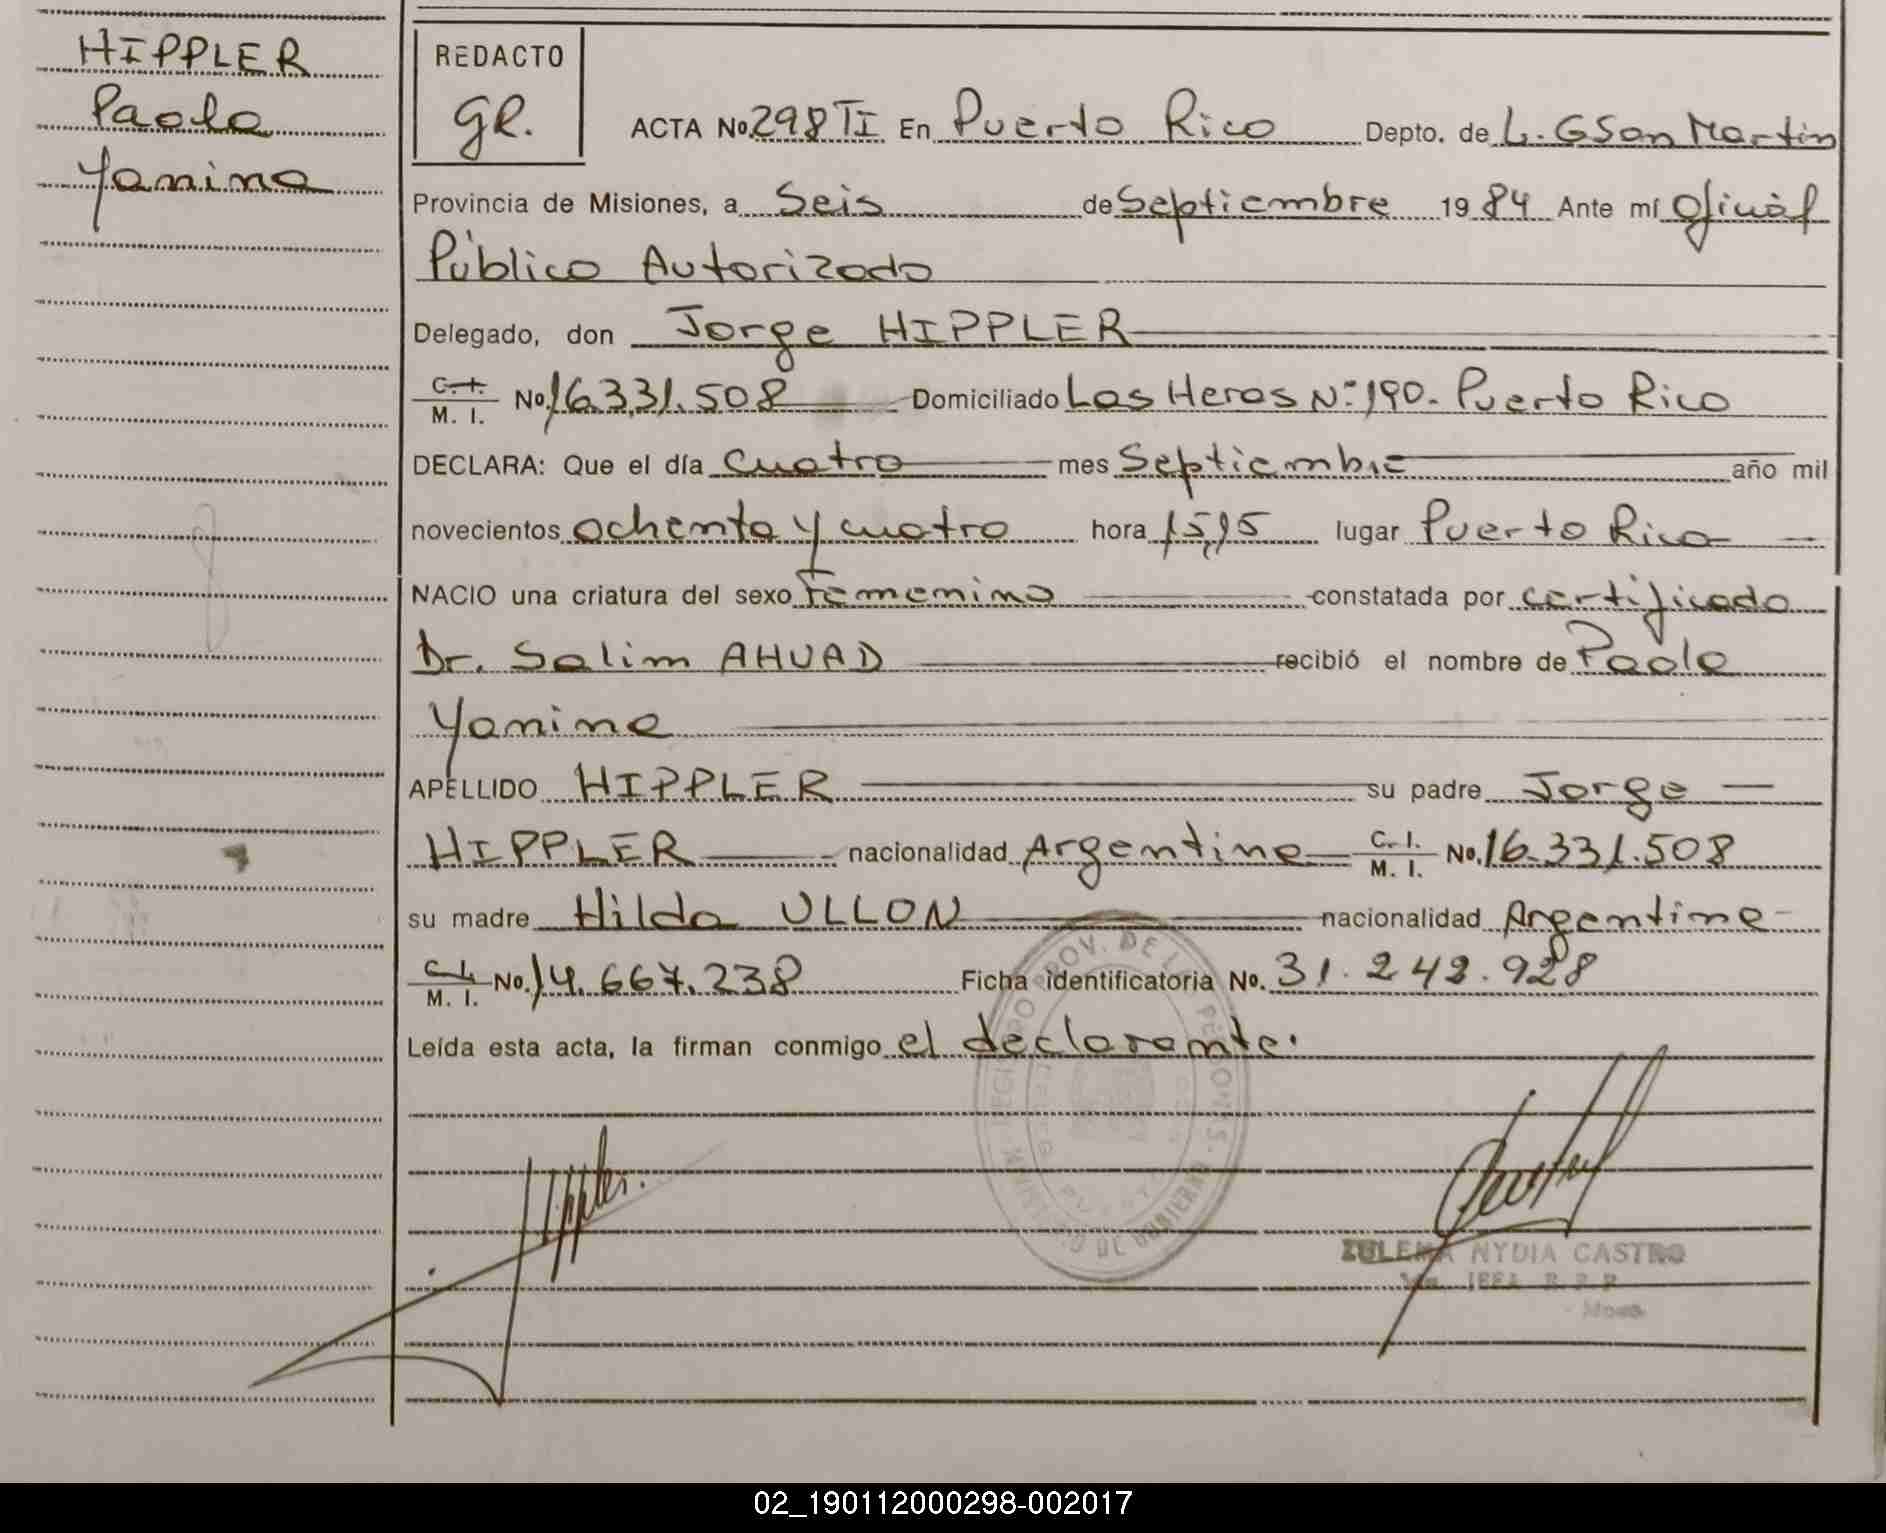 HIPPLER
Paola
Yanina
REDACTO
ACTA No. 298 TI En Puerto Rico Depto. de L. G San Martin
Provincia de Misiones, a Seis de Septiembre 19 84 Ante mí Oficial
Público Autorizado
Delegado, don Jorge HIPPLER
C. I. / M. I. No. 16.331.508 Domiciliado Las Heras Nº 190. Puerto Rico
DECLARA: Que el día Cuatro mes Septiembre año mil
novecientos ochenta y cuatro hora 15,15 lugar Puerto Rico
NACIO una criatura del sexo Femenino constatada por certificado
Dr. Salim AHUAD recibió el nombre de Paola
Yanina
APELLIDO HIPPLER su padre Jorge
HIPPLER nacionalidad Argentina C. I. / M. I. No. 16.331.508
su madre Hilda ULLON nacionalidad Argentina
C. I. / M. I. No. 14.667.238 Ficha identificatoria No. 31.242.928
Leída esta acta, la firman conmigo el declarante.
REGISTRO PROV. DE LAS PERSONAS
MINISTERIO DE GOBIERNO
Hippler.
ZULEMA NYDIA CASTRO
02_190112000298-002017